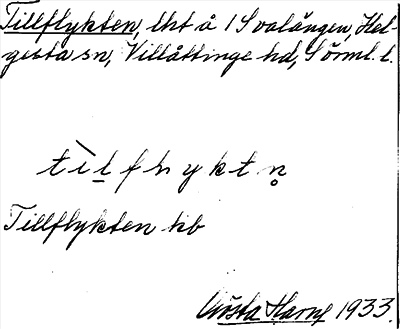 Tillflykten, lht å 1 Svalången, Hel-
gesta sn, Villåttinge hd, Sörml. l.
tilflyktn̥
Tillflykten hb
Gösta Harne 1933.